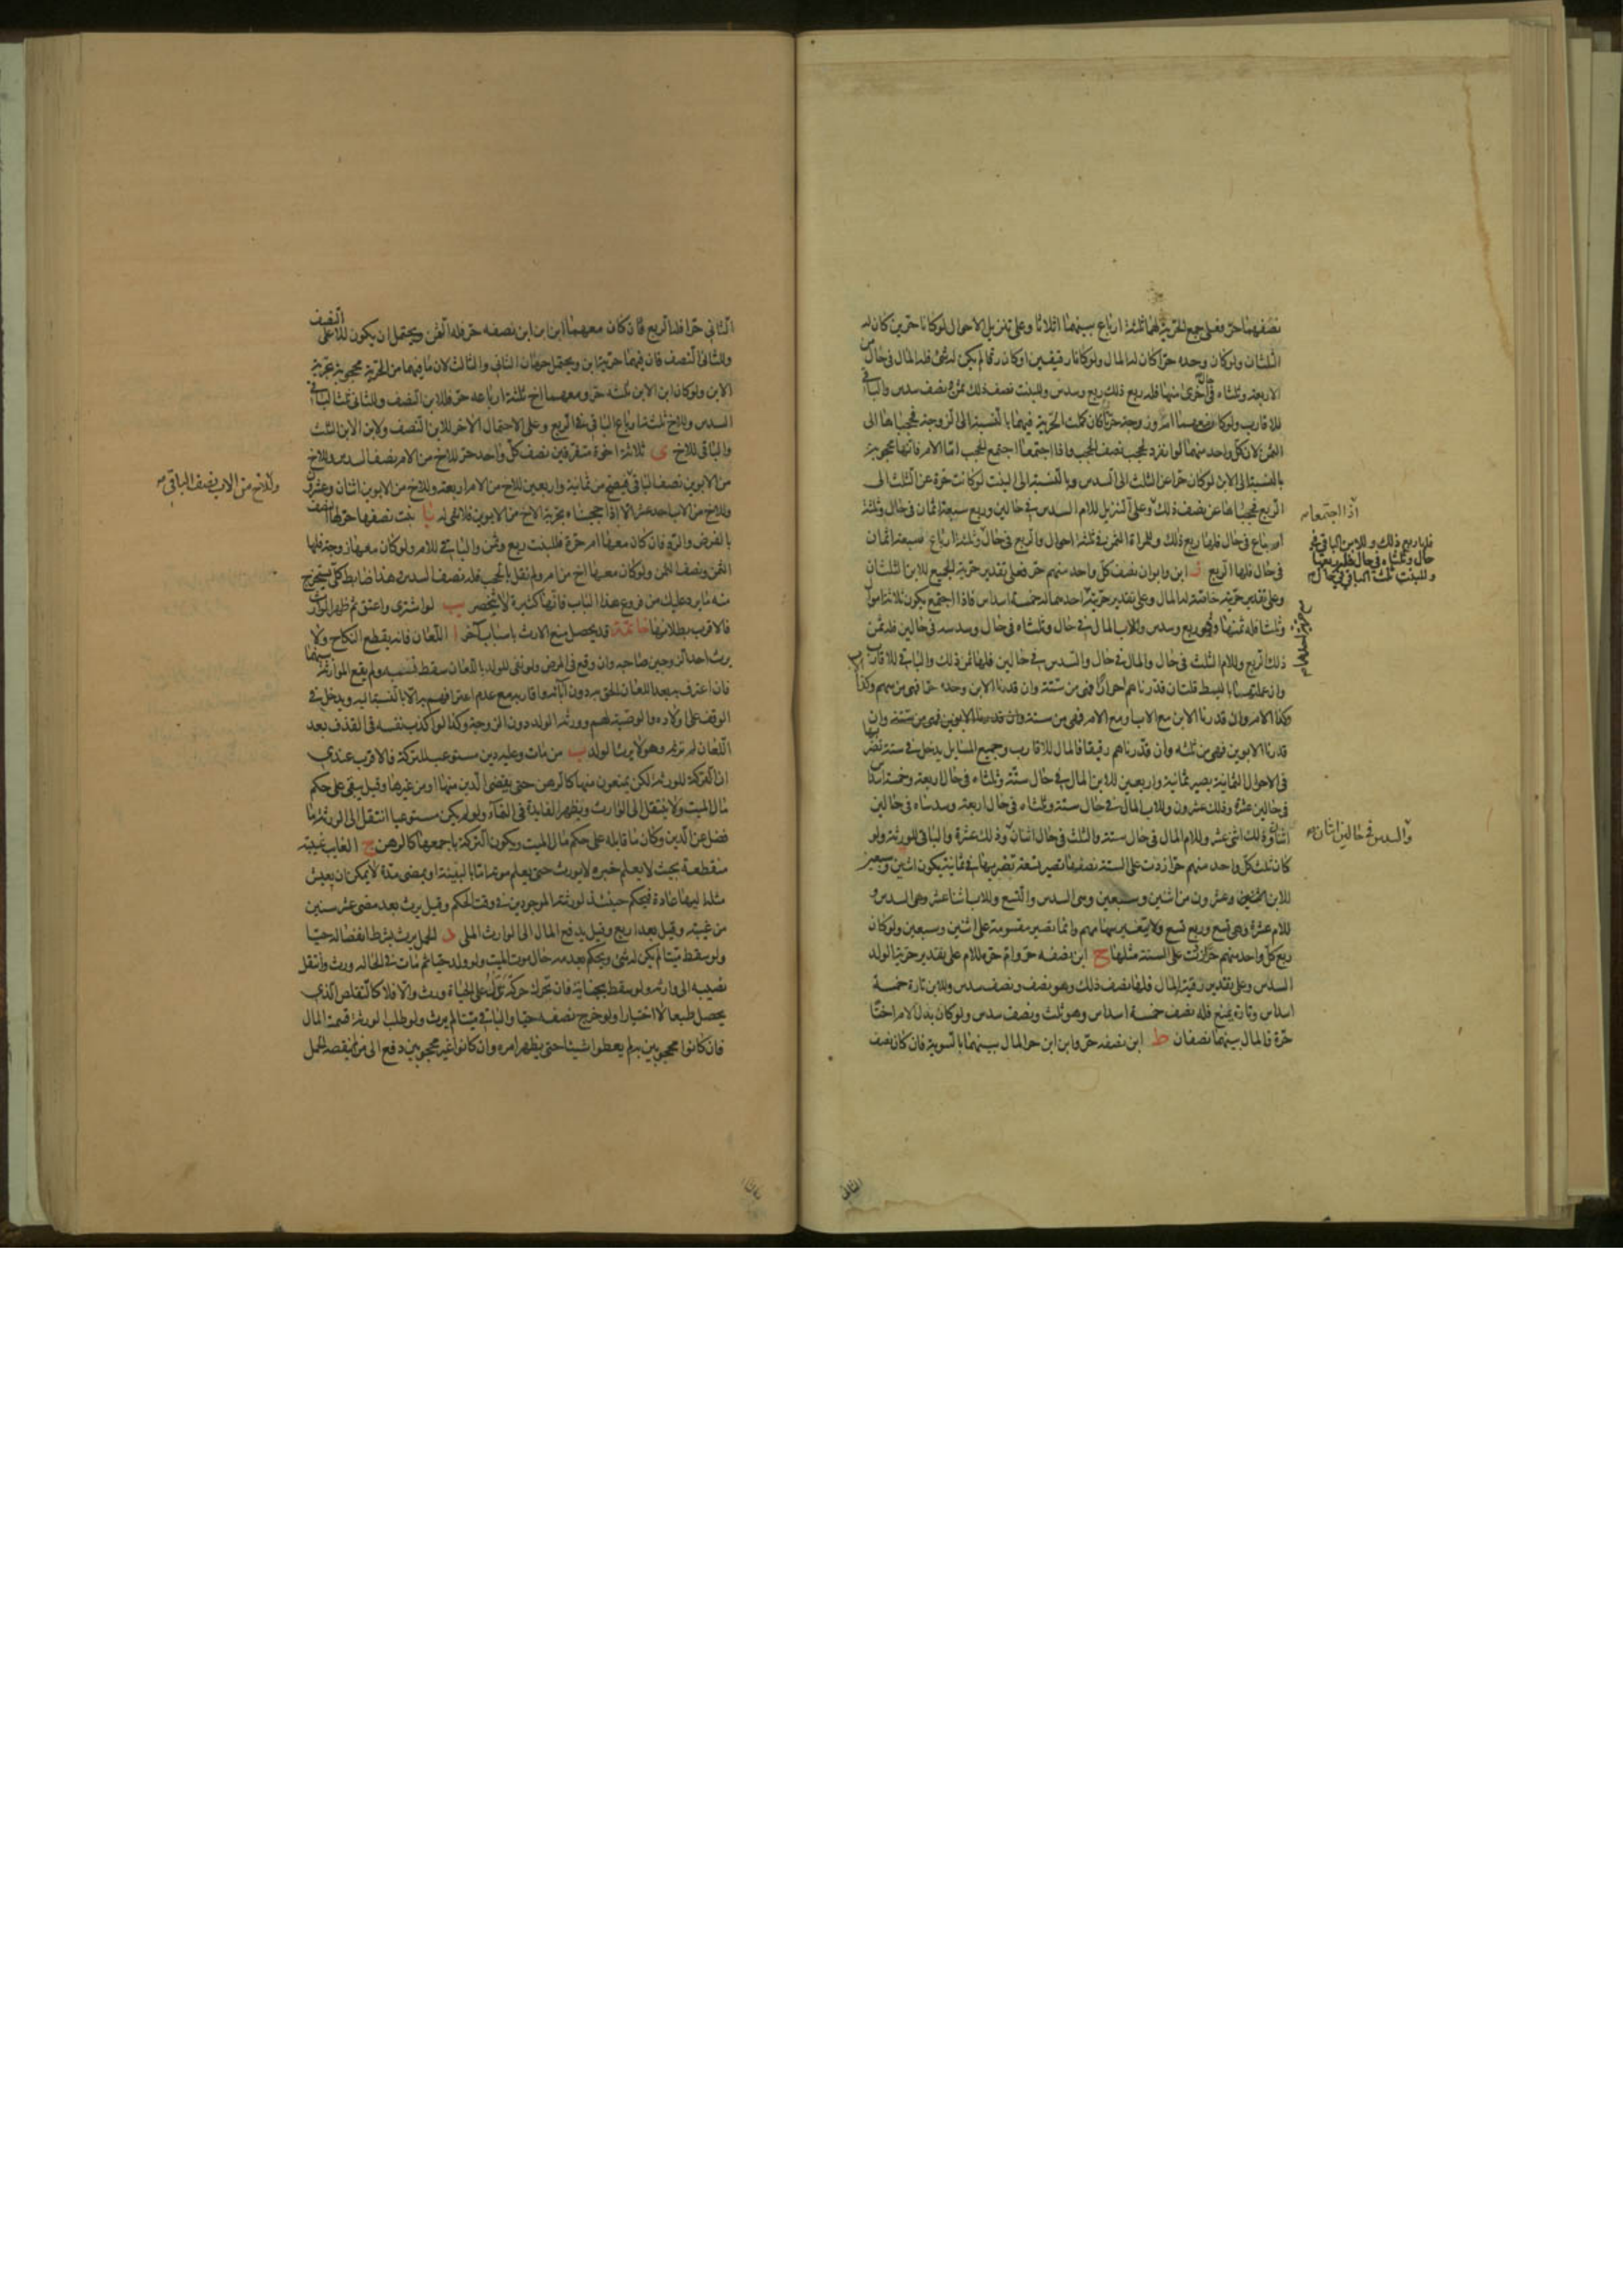 نصفهما حر فعلى جمع الحرية لهما ثلثة ارباع بينهما اثلاثا وعلى تنزيل الاحوال لو كانا حرين كان له
الثلثان ولو كان وحده حرا كان له المال ولو كانا رقيقين او كان رقا لم يكن له شئ فله المال في حال من
الاربعة وثلثاه في حال اخرى منها فله ربع ذلك ربع وسدس وللبنت نصف ذلك ثمن ونصف سدس والباقي
للاقارب ولو كان معهما امرأة وزوجة حرتان كملت الحرية فيهما بالنسبة الى الزوجة فحجباها الى
الثمن لان كل واحد منهما لو انفرد لحجب نصف الحجب واذا اجتمعا اجتمع الحجب اما الام فانها محجوبة
بالنسبة الى الابن لو كان حرا عن الثلث الى السدس وبالنسبة الى البنت لو كانت حرة عن الثلث الى
الربع فحجباها عن نصف ذلك وعلى التنزيل للام السدس في حالين وربع سبعة اثمان في حال وثلثة
ارباع في حال فلها ربع ذلك وللمراة الثمن في ثلثة احوال والربع في حال وثلثة ارباع سبعة اثمان
في حال فلها الربع ز ابن وابوان نصف كل واحد منهم حر فعلى تقدير حرية الجميع للابن الثلثان
وعلى تقدير حريته خاصة له المال وعلى تقدير حرية احدهما له خمسة اسداس فاذا اجتمع يكون ثلاثة اموال
وثلثا فله ثمنها وهو ربع وسدس وللاب المال في حال وثلثاه في حال وسدسه في حالين فله ثمن
ذلك الربع وللام الثلث في حال والمال في حال والسدس في حالين فلها ثمن ذلك والباقي للاقارب
وان عملتها بالبسط قلت ان قدرناهم احرارا فهي من ستة وان قدرنا الابن وحده حرا فهي من سهم وكذا الاب
وكذا الام وان قدرنا الابن مع الاب او مع الام فهي من ستة وان قدرنا الابوين فهي من ستة وان
قدرنا الابوين فهي من ثلثة وان قدرناهم رقيقا فالمال للاقارب وجميع المسايل يدخل في ستة تضربها
في الاحوال الثمانية يصير ثمانية واربعين للابن المال في حال ستة وثلثاه في حال اربعة وخمسة اسداسه
في حالين عشرة وذلك عشرون وللاب المال في حال ستة وثلثاه في حال اربعة وسدساه في حالين
اثنان وذلك اثنى عشر وللام المال في حال ستة والثلث في حال اثنان وذلك عشرة والباقي للورثة ولو
كان ثلث كل واحد منهم حرا زدت على الستة نصفها تصير تسعة تضربها في ثمانية يكون اثنين وسبعين
للابن عشرون من اثنين وسبعين وهي السدس والتسع وللاب اثنا عشر وهي السدس و
للام عشرة وهي تسع وربع تسع ولا يتغير سهامهم وانما تصير مقسومة على اثنين وسبعين ولو كان
ربع كل واحد منهم حرا زدت على الستة مثلها ح ابن نصفه حر وام حرة للام على تقدير حرية الولد
السدس وعلى تقدير رقيته المال فلها نصف ذلك وهو نصف ونصف سدس وللابن تارة خمسة
اسداس وتارة يمنع فله نصف خمسة اسداس وهو ثلث ونصف سدس ولو كان بدل الام اختا
حرة فالمال بينهما نصفان ط ابن نصفه حر وابن ابن حر المال بينهما بالسوية فان كان نصف
اذا اجتمعا
فلها ربع ذلك وللابن الباقي في
حال وثلثاه في حال فله ربعها
وللبنت ثلث الباقي في حال
والسدس في حالين اثنان
الثاني
الثاني حرا فله الربع فان كان معهما ابن ابن ابن نصفه حر فله الثمن ويحتمل ان يكون للاعلى النصف
وللثاني النصف فان فيهما حرية ابن ويحتمل حرمان الثاني والثالث لان ما فيهما من الحرية محجوبة بحرية
الابن ولو كان ابن الابن ثلثه حر ومعهما اخ ثلثة ارباعه حر فللابن النصف وللثاني ثلث الباقي
السدس وللاخ ثلثة ارباع الباقي الربع وعلى الاحتمال الاخر للابن النصف ولابن الابن الثلث
والباقي للاخ ى ثلاثة اخوة متفرقين نصف كل واحد حر للاخ من الام نصف السدس وللاخ
من الابوين نصف الباقي فيصح من ثمانية واربعين للاخ من الام اربعة وللاخ من الابوين اثنان وعشرون
وللاخ من الاب احد عشر الا اذا حجبناه بحرية الاخ من الابوين فلا شئ له يا بنت نصفها حر لها النصف
بالفرض والرد فان كان معها ام حرة فللبنت ربع وثمن والباقي للام ولو كان معها زوجة فلها
الثمن ونصف الثمن ولو كان معها اخ من ام ولم نقل بالحجب فله نصف السدس هذا ضابط كلي يستخرج
منه ما يرد عليك من فروع هذا الباب فانها كثيرة لا تنحصر يب لو اشترى واعتق ثم ظهر الوارث
فالاقرب بطلانها خاتمة قد يحصل منع الارث باسباب اخر ا اللعان فانه يقطع النكاح ولا
يرث احد الزوجين صاحبه وان وقع في المرض ولو نفى الولد باللعان سقط نسبه ولم يقع الموارثة بينهما
فان اعترف به بعد اللعان الحق به دون ابائه واقاربه مع عدم اعترافهم به الا بالنسبة اليه ويدخل في
الوقف على اولاده والوصية لهم وورثه الولد دون الزوجة وكذا لو اكذب نفسه في القذف بعد
اللعان لم ترثه وهو لا يرث الولد ب من مات وعليه دين مستوعب للتركة فالاقرب عندي
ان التركة للورثة لكن يمنعون منها كالرهن حتى يقضى الدين منها او من غيرها وقيل يبقى على حكم
مال الميت ولا ينتقل الى الوارث ويظهر الفايدة في النماء ولو لم يكن مستوعبا انتقل الى الورثة ما
فضل عن الدين وكان ما قابله على حكم مال الميت ويكون التركة باجمعها كالرهن ج الغايب غيبة
منقطعة بحيث لا يعلم خبره لا يورث حتى يعلم موته اما بالبينة او بمضي مدة لا يمكن ان يعيش
مثله اليها عادة فيحكم حينئذ لورثته الموجودين في وقت الحكم وقيل يرث بعد مضي عشر سنين
من غيبته وقيل بعد اربع وقيل يدفع المال الى الوارث الملي د الحمل يرث بشرط انفصاله حيا
ولو سقط ميتا لم يكن له شئ ويحكم بعدمه حال موت الميت ولو ولد حيا ثم مات في الحال ورث وانتقل
نصيبه الى وارثه ولو سقط بجناية فان تحرك حركة تدل على الحياة ورث والا فلا كالتقلص الذي
يحصل طبعا لا اختيارا ولو خرج نصفه حيا والباقي ميتا لم يرث ولو طلب الورثة قسمة المال
فان كانوا محجوبين به لم يعطوا شيئا حتى يظهر امره وان كانوا غير محجوبين دفع الى من لم ينقصه الحمل
وللاخ من الاب نصف الباقي